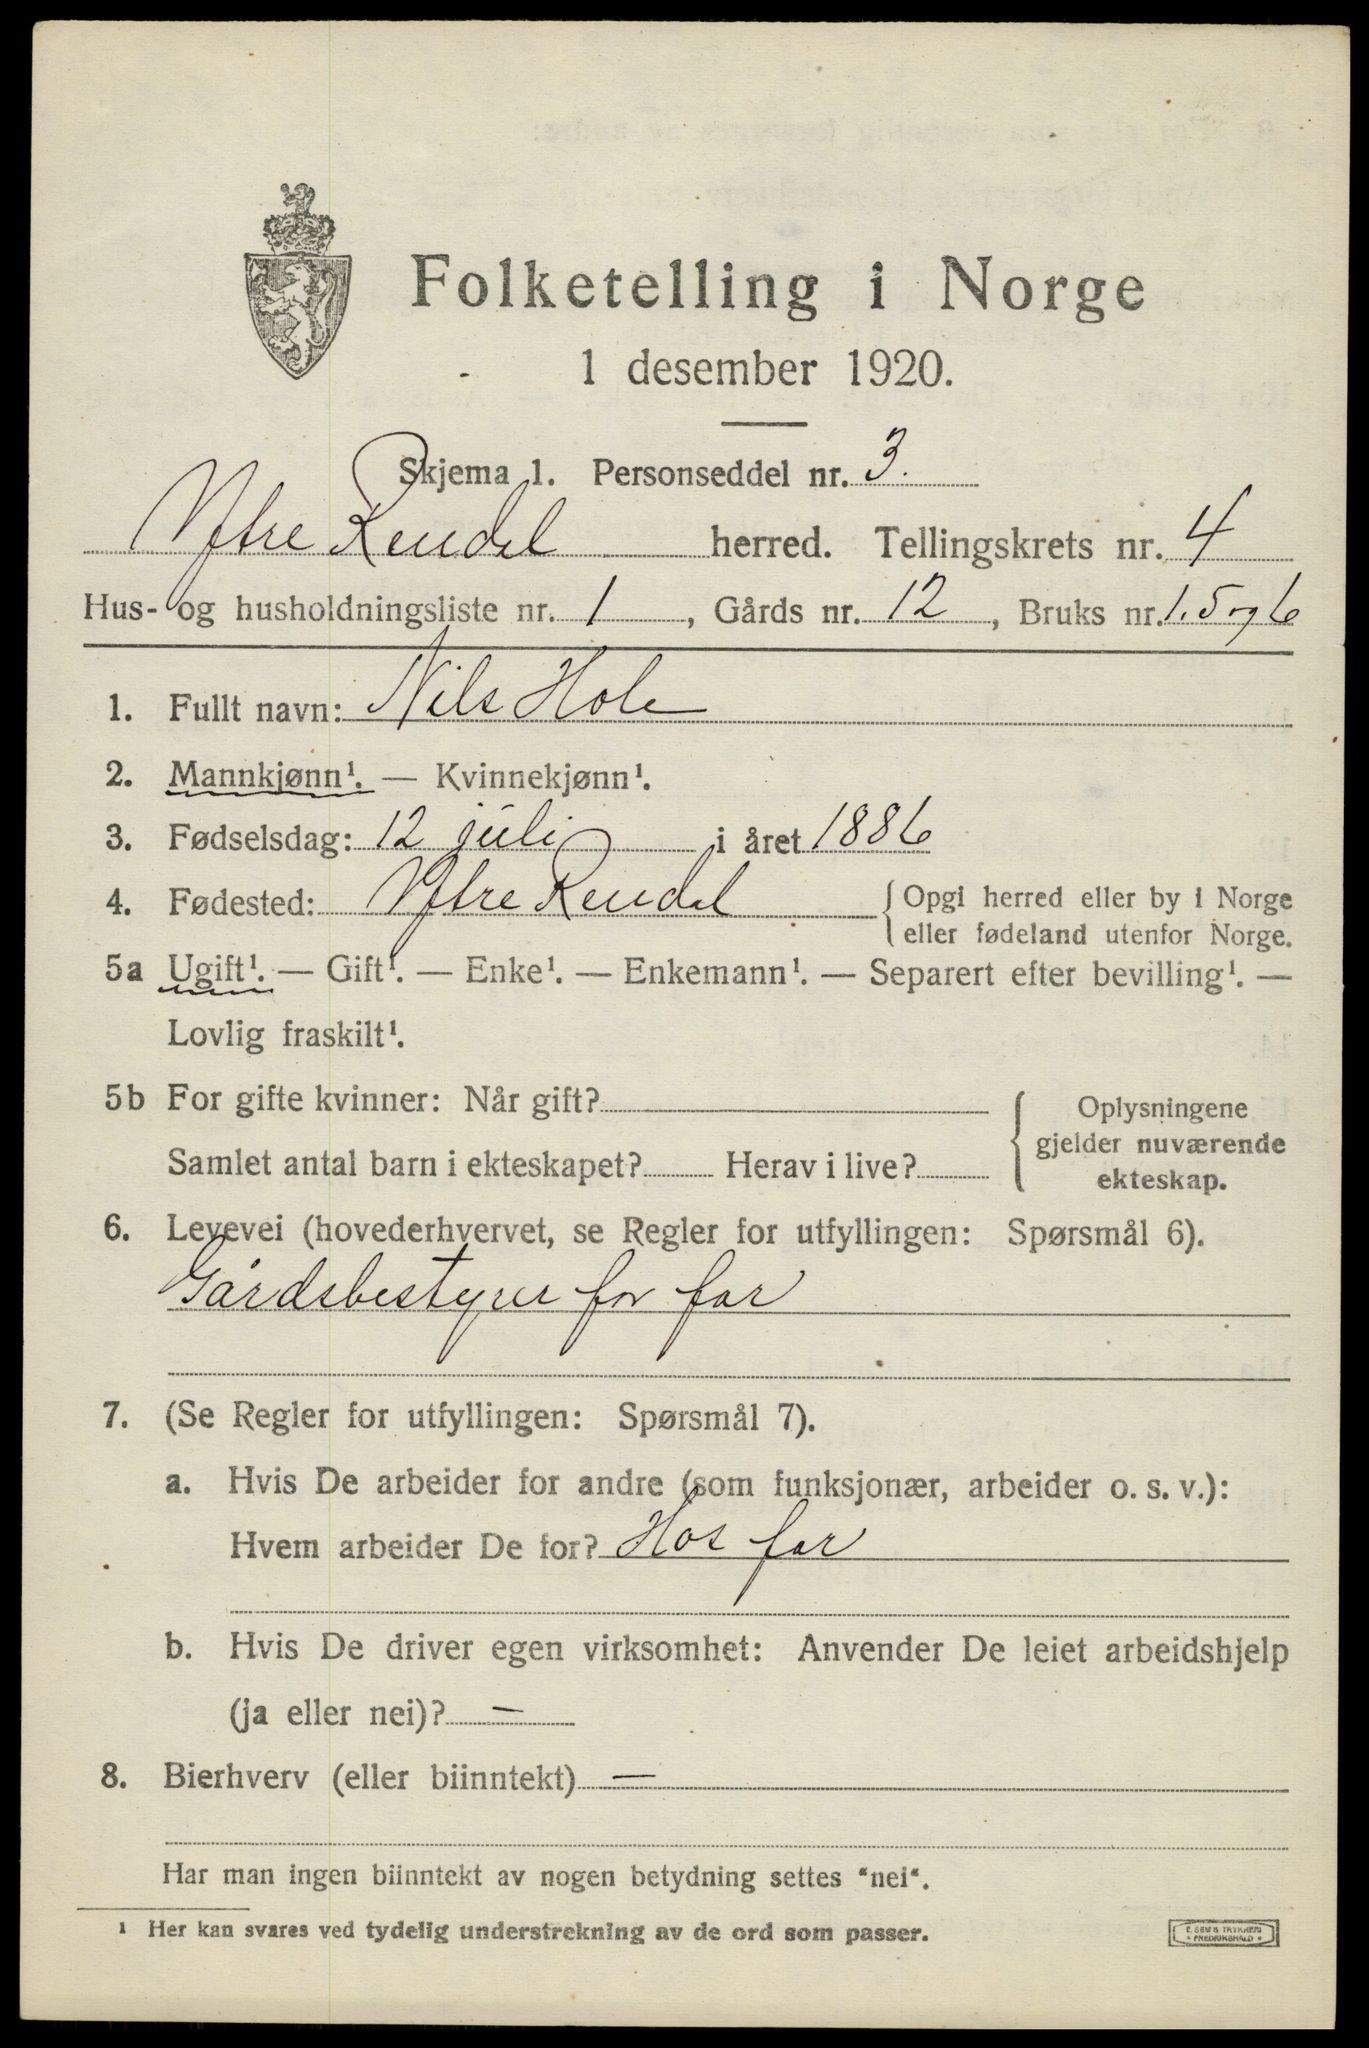 Folketelling i Norge
1 desember 1920.
Skjema 1. Personseddel nr. 3.
Ytre Rendal herred. Tellingskrets nr. 4
Hus- og husholdningsliste nr. 1, Gårds nr. 12, Bruks nr. 1. 5 og 6
1. Fullt navn: Nils Hole
2. Mannkjønn¹. — Kvinnekjønn¹.
3. Fødselsdag: 12 juli i året 1886
4. Fødested: Ytre Rendal { Opgi herred eller by i Norge
eller fødeland utenfor Norge.
5a Ugift¹. — Gift¹. — Enke¹. — Enkemann¹. — Separert efter bevilling¹. —
Lovlig fraskilt¹.
5b For gifte kvinner: Når gift?
Samlet antal barn i ekteskapet? Herav i live?
{ Oplysningene
gjelder nuværende
ekteskap.
6. Levevei (hovederhvervet, se Regler for utfyllingen: Spørsmål 6).
Gårdsbestyrer for far
7. (Se Regler for utfyllingen: Spørsmål 7).
a. Hvis De arbeider for andre (som funksjonær, arbeider o. s. v.):
Hvem arbeider De for? Hos far
b. Hvis De driver egen virksomhet: Anvender De leiet arbeidshjelp
(ja eller nei)? —
8. Bierhverv (eller biinntekt) —
Har man ingen biinntekt av nogen betydning settes “nei“.
¹ Her kan svares ved tydelig understrekning av de ord som passer.
FREDRIKSHALD